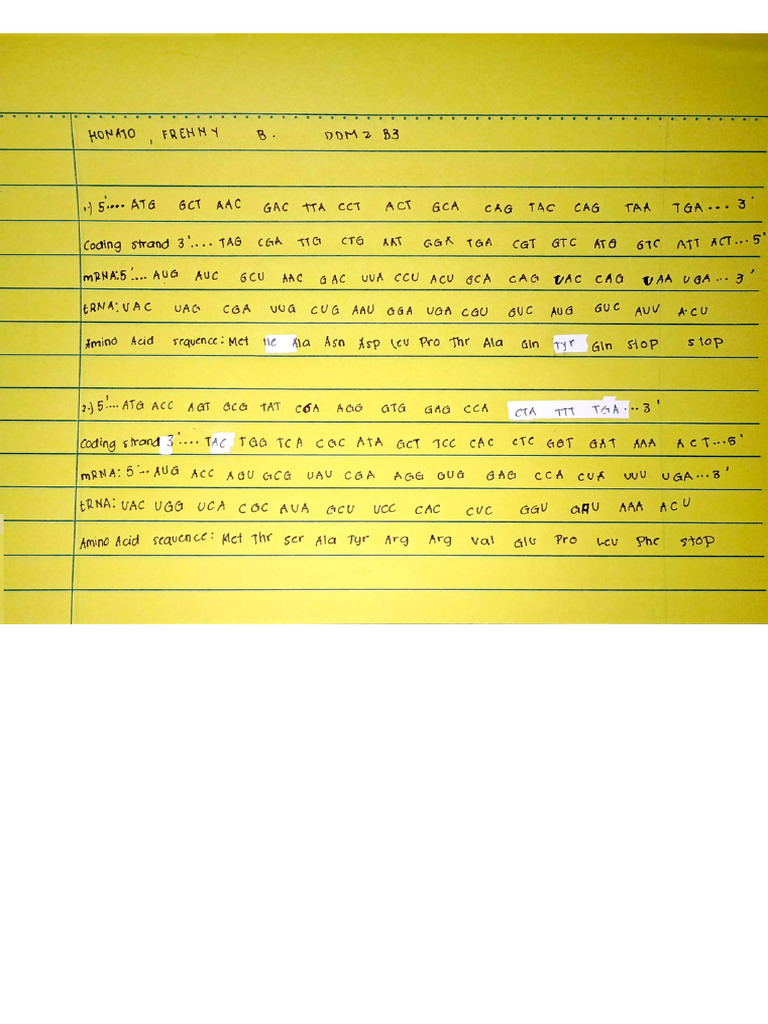 HONATO, FRENNY B. DDM2 B3
1.) 5'.... ATG GCT AAC GAC TTA CCT ACT GCA CAG TAC CAG TAA TGA... 3'
Coding strand 3'.... TAG CGA TTG CTG AAT GGA TGA CGT GTC ATG GTC ATT ACT... 5'
mRNA: 5'... AUG AUC GCU AAC GAC UUA CCU ACU GCA CAG UAC CAG UAA UGA... 3'
tRNA: UAC UAG CGA UUG CUG AAU GGA UGA CGU GUC AUG GUC AUU ACU
Amino Acid sequence: Met Ile Ala Asn Asp Leu Pro Thr Ala Gln Tyr Gln Stop Stop
2.) 5'... ATG ACC AGT GCG TAT CGA AGG GTG GAG CCA CTA TTT TGA... 3'
Coding strand 3'.... TAC TGG TCA CGC ATA GCT TCC CAC CTC GGT GAT AAA ACT... 5'
mRNA: 5'... AUG ACC AGU GCG UAU CGA AGG GUG GAG CCA CUA UUU UGA... 3'
tRNA: UAC UGG UCA CGC AUA GCU UCC CAC CUC GGU GAU AAA ACU
Amino Acid sequence: Met Thr Ser Ala Tyr Arg Arg Val Glu Pro Leu Phe Stop